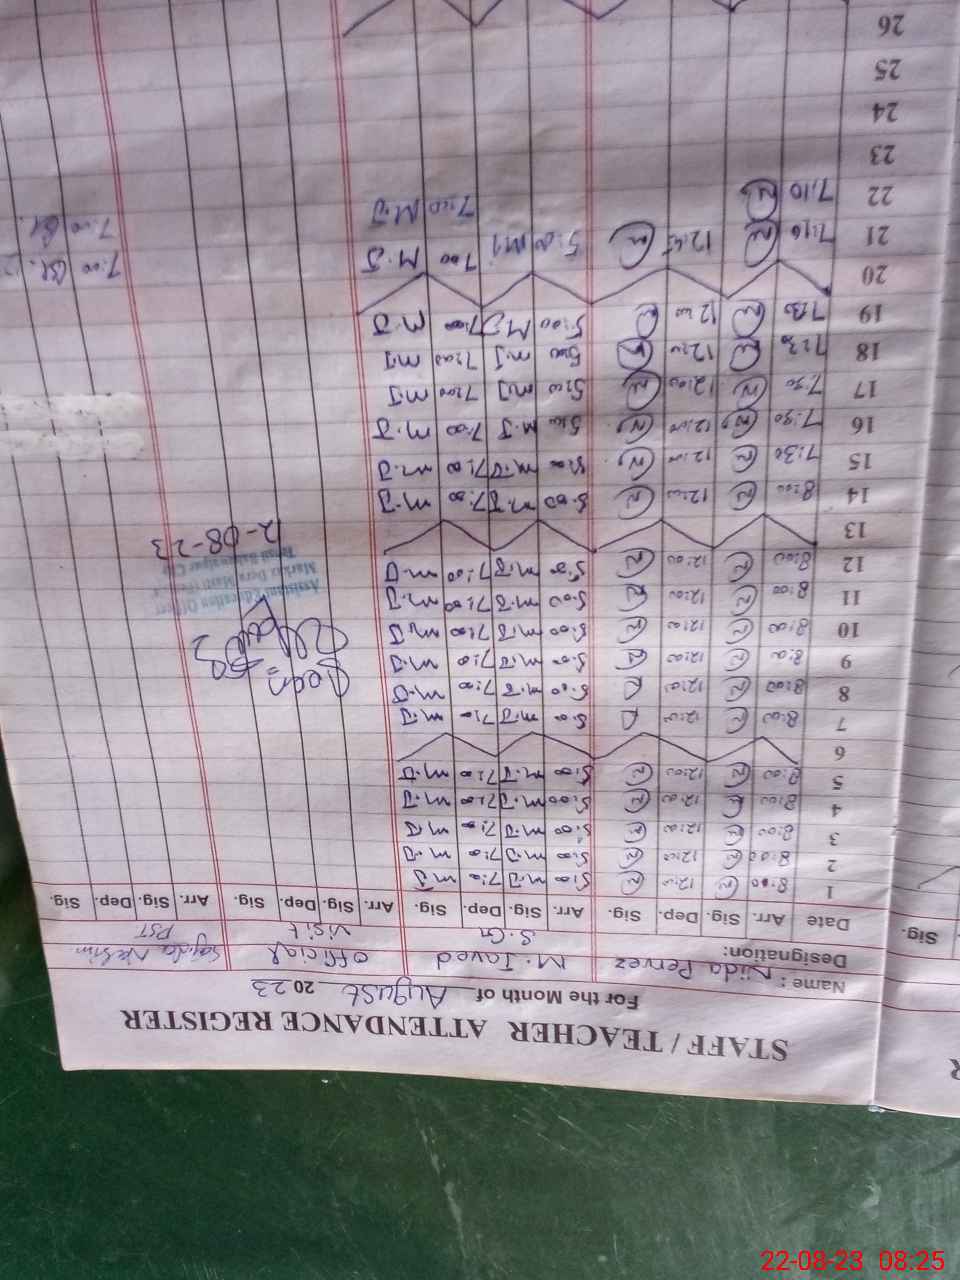 STAFF / TEACHER ATTENDANCE REGISTER
For the Month of August 2023
Name: Nida Pervez M. Javed Official Sajida Nasrin
Designation: S.G visit PST
Date Arr. Sig. Dep. Sig. Arr. Sig. Dep. Sig. Arr. Sig. Dep. Sig. Arr. Sig. Dep. Sig.
1 8:00 12:00 5:00 M.J 7:00 M.J
2 8:00 12:00 5:00 M.J 7:00 M.J
3 8:00 12:00 5:00 M.J 7:00 M.J
4 8:00 12:00 5:00 M.J 7:00 M.J
5 8:00 12:00 5:00 M.J 7:00 M.J
6
7 8:00 12:00 5:00 M.J 7:00 M.J
8 8:00 12:00 5:00 M.J 7:00 M.J
9 8:00 12:00 5:00 M.J 7:00 M.J
10 8:00 12:00 5:00 M.J 7:00 M.J
11 8:00 12:00 5:00 M.J 7:00 M.J
12 8:00 12:00 5:00 M.J 7:00 M.J
Assistant Education Officer
2-08-23
13
14 8:00 12:00 5:00 M.J 7:00 M.J
15 7:30 12:00 5:00 M.J 7:00 M.J
16 7:30 12:00 5:00 M.J 7:00 M.J
17 7:30 12:00 5:00 M.J 7:00 M.J
18 7:30 12:00 5:00 M.J 7:00 M.J
19 7:30 12:00 5:00 M.J 7:00 M.J
20
21 7:16 12:45 5:00 M.J 7:00 M.J 7:00
22 7:10 7:00 M.J 7:00
23
24
25
26
Sig.
22-08-23 08:25